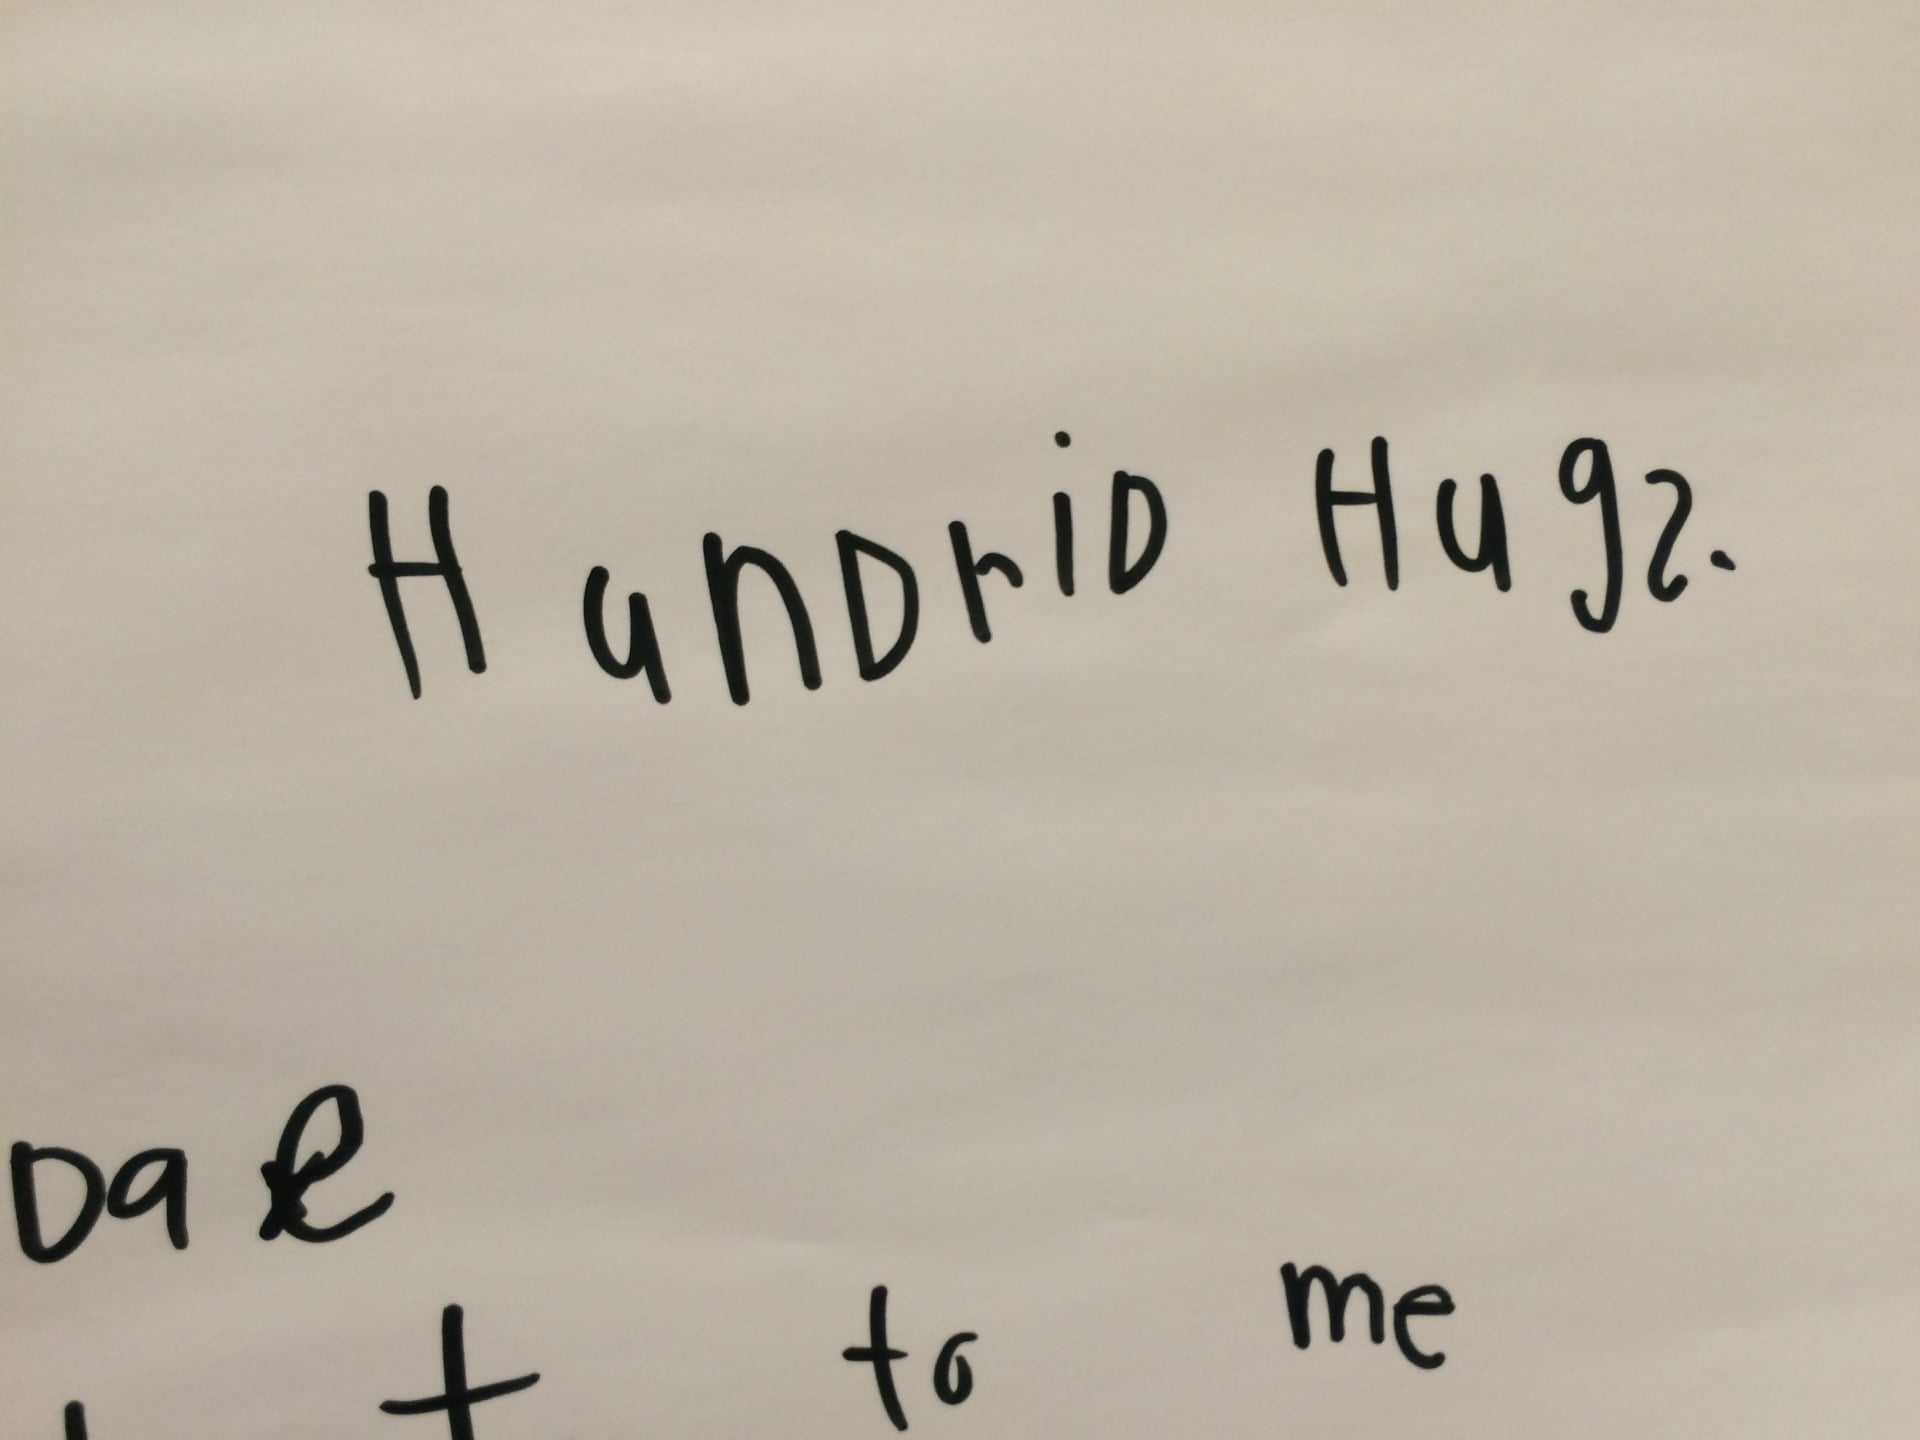 HanDriD Hugs.
Dae
t to me